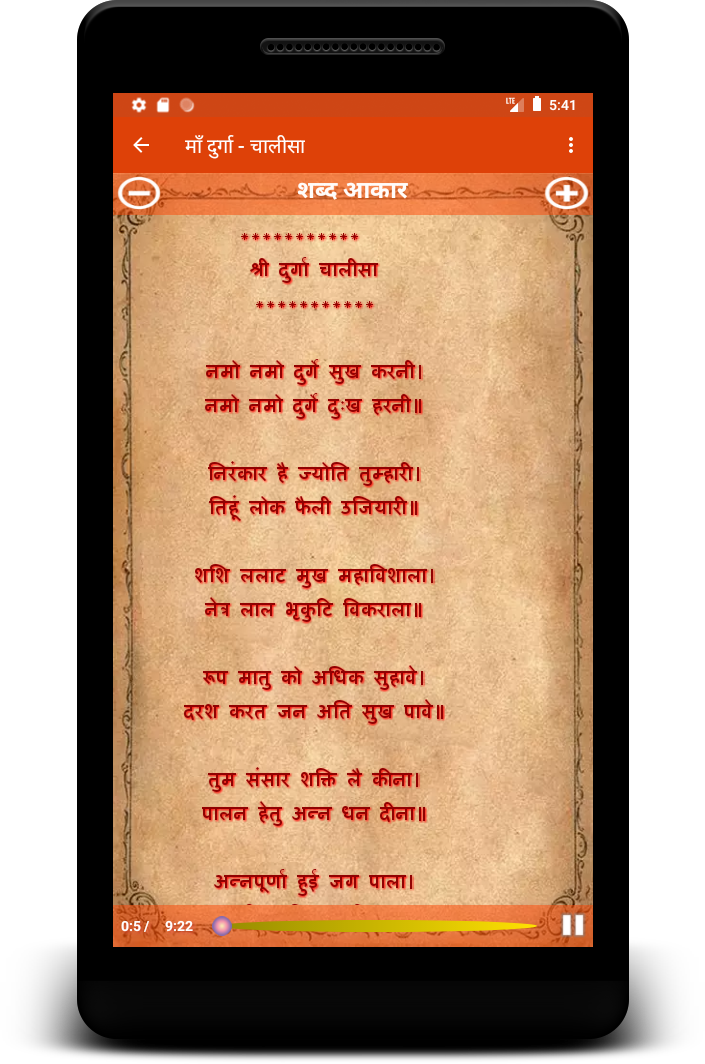 LTE 5:41
माँ दुर्गा - चालीसा
शब्द आकार
***********
श्री दुर्गा चालीसा
***********
नमो नमो दुर्गे सुख करनी।
नमो नमो दुर्गे दुःख हरनी॥
निरंकार है ज्योति तुम्हारी।
तिहूं लोक फैली उजियारी॥
शशि ललाट मुख महाविशाला।
नेत्र लाल भृकुटि विकराला॥
रूप मातु को अधिक सुहावे।
दरश करत जन अति सुख पावे॥
तुम संसार शक्ति लै कीना।
पालन हेतु अन्न धन दीना॥
अन्नपूर्णा हुई जग पाला।
0:5 / 9:22